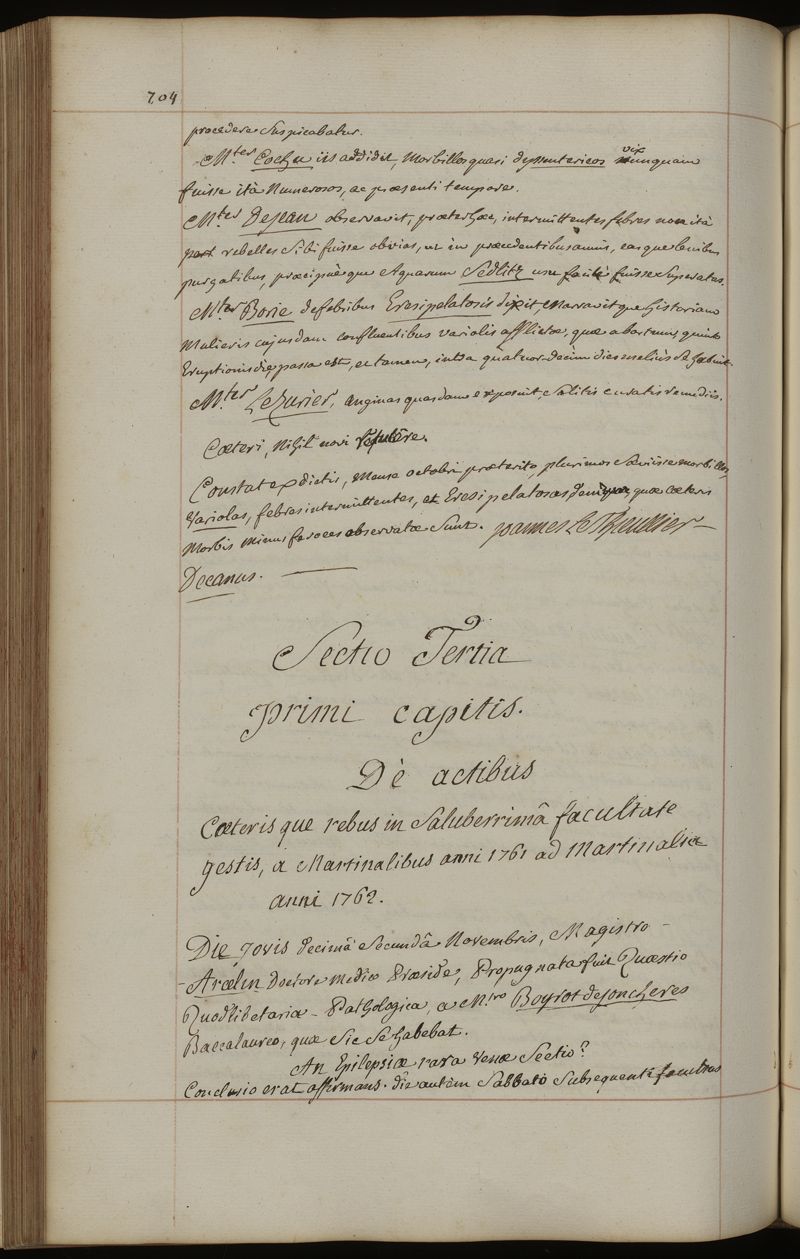 704
procedere suspicabatur.
M.ter Cochu iis addidit, Morbillos quasi dyssentericos vix unquam
fuisse ità Numerosos, ac præsenti tempore.
M.ter Dejean observavit, præter hæc, intermittentes febres non ità
rebelles sibi fuisse obvias, ac in præcedentibus annis, eas que lenibus
purgatibus, præcipuè que Aquarum Sedlitz usu facile fuisse superatas.
M.ter Borie de febribus Eresipelatosis dixit, Narravitque historiam
Mulieris cujusdam confluentibus variolis afflictæ, quæ abortum, quinto
Eruptionis die passa est, et tamen, intra quatuor-decim dies meliùs se habuit.
M.ter Lezurier, anginas quasdam exposuit, solitis curatis remediis.
Cæteri, Nihil novi retulêre.
Constat ex dictis, Mense octobri præterito, plurimos sæviisse morbillos,
Variolas, febres intermittentes, et Eresipelatosas denique, quæ cæteris
Morbis minus feroces observatæ sunt. Joannes Le Thieullier
Decanus.
Sectio Tertia
primi capitis.
Dè actibus
Cæteris que rebus in Saluberrimâ facultate
gestis, a Martinalibus anni 1761 ad Martinalia
anni 1762.
Die Jovis decimâ secundâ Novembris, Magistro
Arcelin Doctore medico Præside, Propugnata fuit Quæstio
Quodlibetaria - Pathologica, a M.ro Boyrot dejoncheres
Baccalaureo, quæ sic se habebat.
An Epilepsiæ rara venæ Sectio?
Conclusio erat affirmans. die autem Sabbato subsequenti